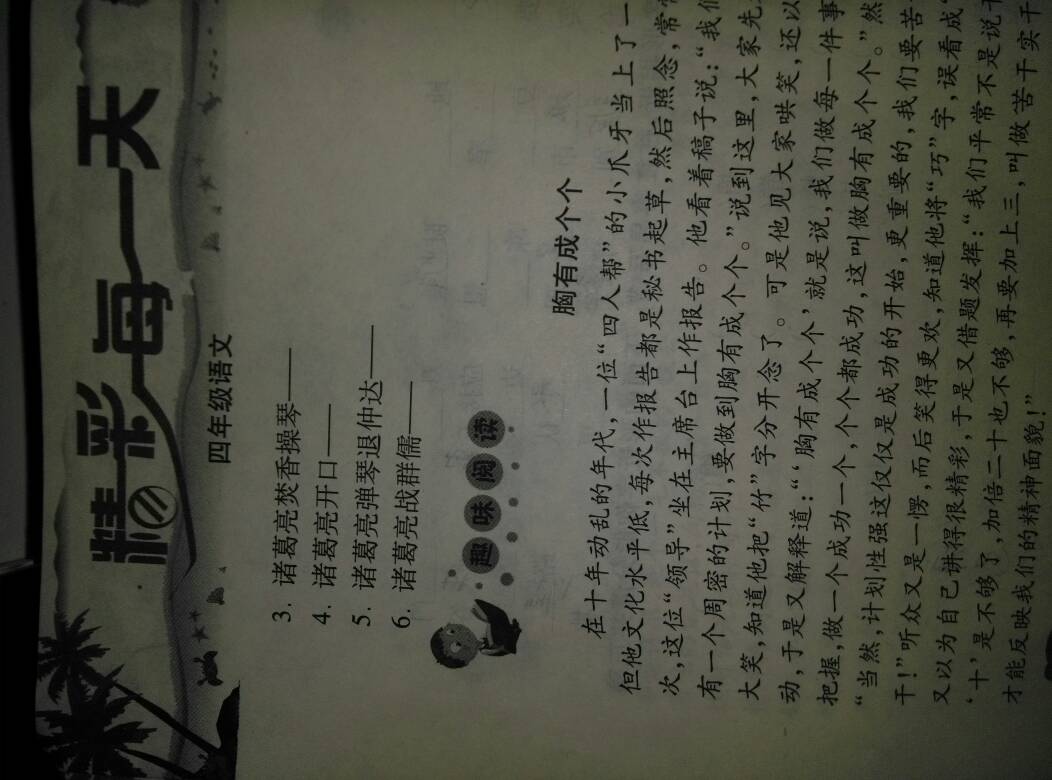 精彩每一天
四年级语文
3. 诸葛亮焚香操琴——
4. 诸葛亮开口——
5. 诸葛亮弹琴退仲达——
6. 诸葛亮战群儒——
趣味阅读
胸有成个个
在十年动乱的年代,一位“四人帮”的小爪牙当上了一
但他文化水平低,每次作报告都是秘书起草,然后照念,常
次,这位“领导”坐在主席台上作报告。他看着稿子说:“我们
有一个周密的计划,要做到胸有成个个。”说到这里,大家先
大笑,知道他把“竹”字分开念了。可是他见大家哄笑,还以
动,于是又解释道:“‘胸有成个个’就是说,我们做每一件事
把握,做一个成功一个,个个都成功,这叫做胸有成个个。”然
“当然,计划性强这仅仅是成功的开始,更重要的,我们要苦
干!”听众又是一愣,而后笑得更欢,知道他将“巧”字,误看成
又以为自己讲得很精彩,于是又借题发挥:“我们平常不是说
‘十’是不够了,加倍二十也不够,再要加上三,叫做苦干实干
才能反映我们的精神面貌!”